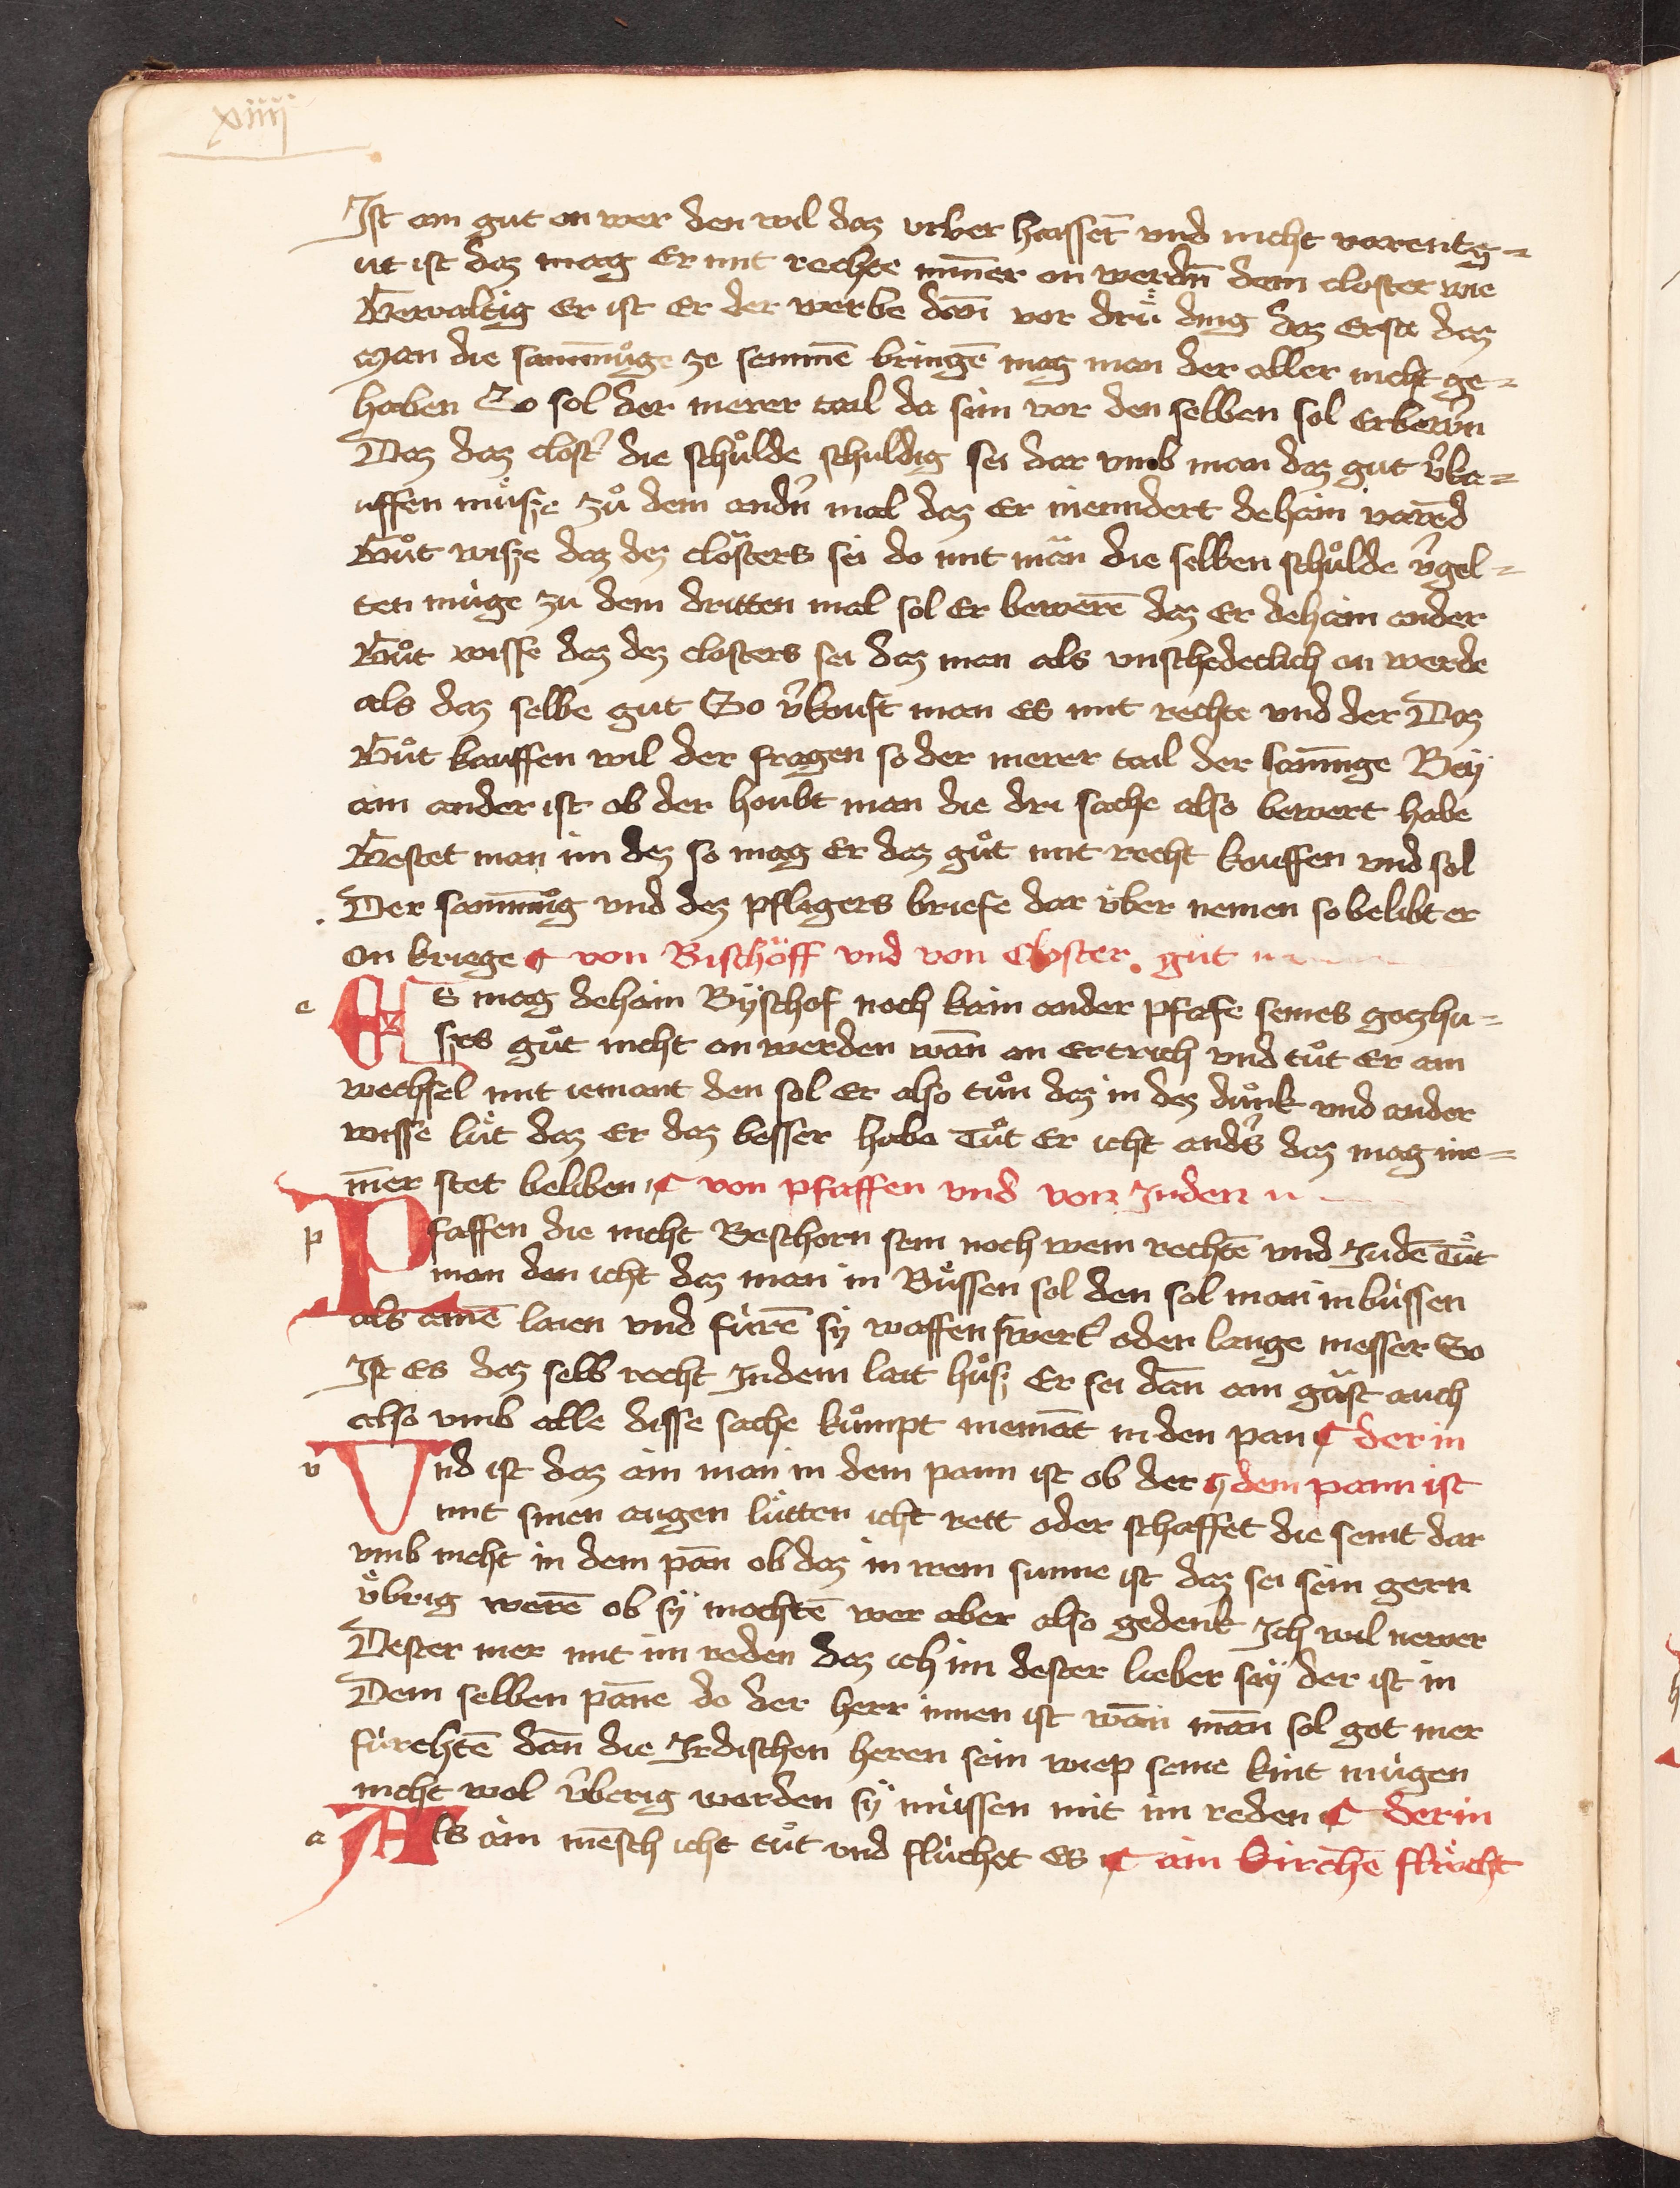 xiiij
Ist ain gut an wer den wil daz urber haisset̄ vnd nicht varentg=
ut ist daz mag Er mit rechte nīmer an werdn̄ dem closter wie
Gewaltig Er ist Er der werbe dan̄ vor drü ding daz Erste daz
Man die sammnu̇ge ze semmē bringē mag man der aller nicht ge=
haben So sol der merer tail da sein vor den selben sol Er bewern
Daz daz clost̾ die schůlde schuldig sei dar vmb man daz gut v̾ka=
uffen můsze zů dem andn̾ mal daz Er nienndert dehain varēd
Gůt wisze daz dez closters sei do mit man die selben schůlde v̾gel=
ten müge zu dem dritten mal sol Er bewerē daz Er dehain ander
Gůt wisse daz dez closters sei daz man als vnschedeclich an werde
als daz selbe gut So v̾kauft man es mit rechte vnd der Daz
Gůt kauffen wil der fragen so der merer tail der samn̄ge Bey
ain ander ist ob der houbt man die dri sache also bewert habe
Gestet man im dez so mag Er daz gůt mit recht kouffen vnd sol
Der samn̄ug vnd dez pflegers briefe dar über nemen so belibt er
on kriege ¶ von Bischöff vnd von Closter gůt
e Es mag dehain Byschof noch kain ander pfafe seines gozhu=
szes gůt nicht an werden wan̄ an ertrich vnd tůt Er ain
wechsel mit iemant den sol Er also tůn daz in dez dunk vnd ander
wisse lüt daz Er daz besser habe Tůt Er icht anders daz mag nie=
m̄er stet beliben ¶ von pfaffen vnd von Juden
p Pfaffen die nicht Beschorn sein noch wem rechtē vnd Judē Tůt
man den icht daz man in Büssen sol den sol man in büssen
als ainē laien vnd fürē sy waffen swert̾ oder lange messer So
Ist Es daz selb recht In dem lait husz Er sei dan̄ ain gast auch
also vmb alle disse sache kůmpt niemāt in den pan ¶ der in
v Und ist daz ain man in dem pann ist ob der ¶ dem pann ist
mit sinen augen lütten icht rett oder schaffet die seint dar
vmb nicht in dem pān ob daz in irem sinne ist daz sei sein gern
übrig werē ob sy mochtē wer aber also gedenk Ich wil newer
Dester mer mit im reden daz ich im dester lieber sey der ist in
Dem selben pāne do der herr innen ist wān mān sol got mer
fürchtē dān die Irdischen heren sein wiep seine kint mügen
nicht wol überig werden sy müssen mit im reden ¶ der in
a Als ain mēsch icht tůt vnd flüchet es ¶ ain kirchē flücht